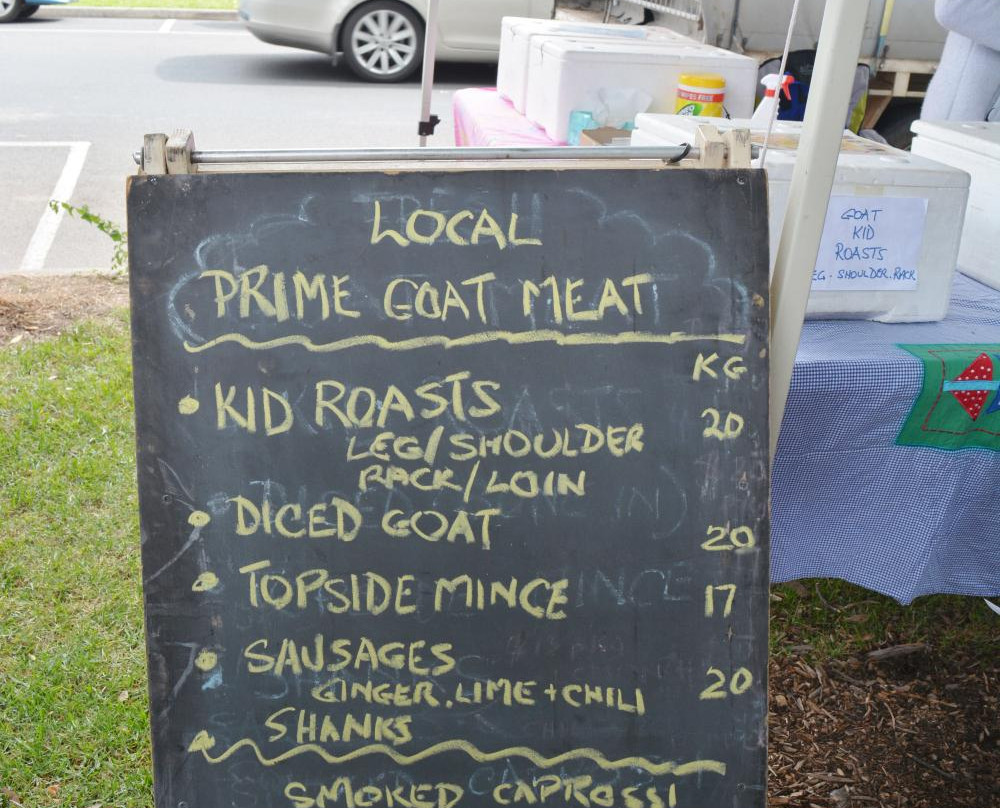 LOCAL
PRIME GOAT MEAT
KG
KID ROASTS 20
LEG/SHOULDER
RACK/LOIN
DICED GOAT 20
TOPSIDE MINCE 17
SAUSAGES 20
GINGER.LIME+CHILI
SHANKS
SMOKED CAPROSSI
GOAT
KID
ROASTS
EG.SHOULDER.RACK